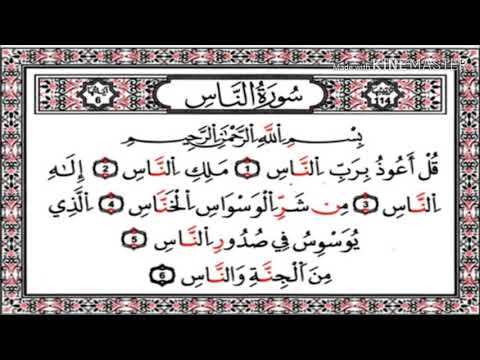 Made with KINEMASTER
سُورَةُ النَّاسِ
114
6
بِسْمِ اللَّهِ الرَّحْمَٰنِ الرَّحِيمِ
قُلْ أَعُوذُ بِرَبِّ النَّاسِ ١ مَلِكِ النَّاسِ ٢ إِلَٰهِ
النَّاسِ ٣ مِن شَرِّ الْوَسْوَاسِ الْخَنَّاسِ ٤ الَّذِي
يُوَسْوِسُ فِي صُدُورِ النَّاسِ ٥
مِنَ الْجِنَّةِ وَالنَّاسِ ٦